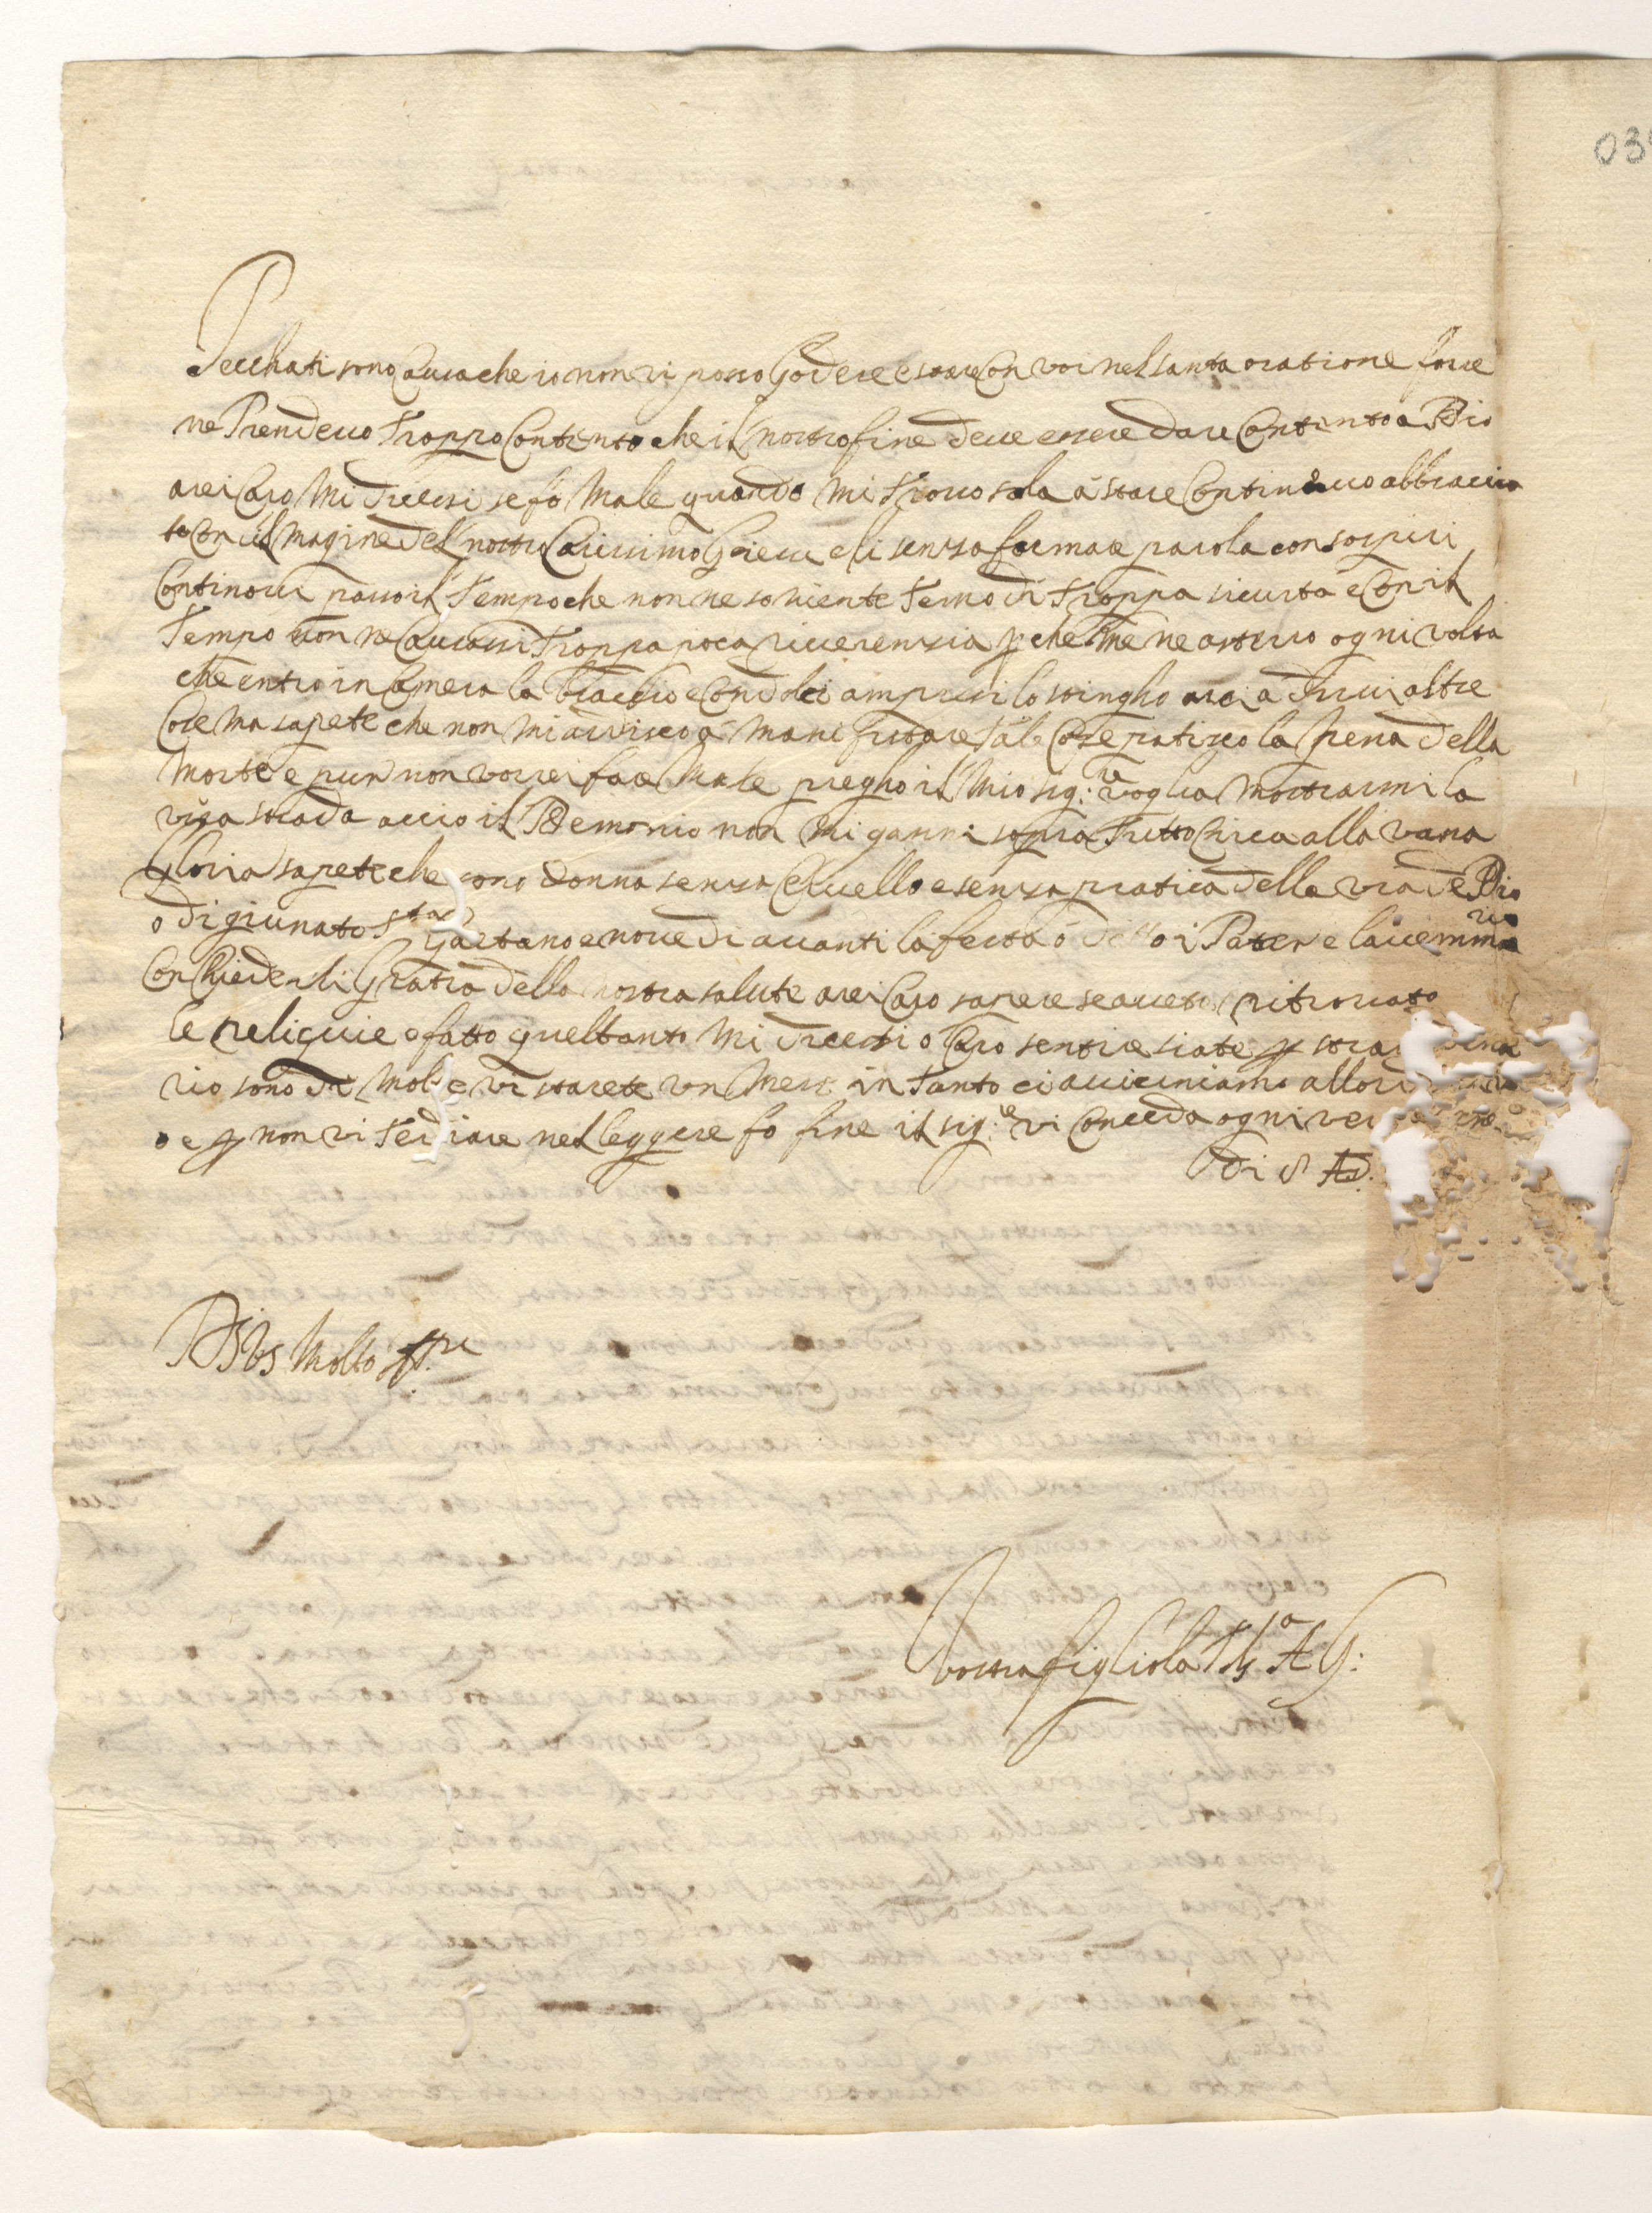 03
Pecchati sono causa che io non vi posso Godere e stare con voi nel santa oratione forse
ne Prendevo Troppo Contento che il nostro fine deve essere dare Contento a Dio
arei Caro Mi Dicessi se fo Male quando Mi Trovo sola à stare Continuo abbraccia
to con il Magine del nostro Carissimo Giesu e li senza formare parola con sospiri
Continovi passo il Tempo che non ne so niente Temo di Troppa sicurta e Con il
Tempo non ne Causassi Troppa poca riverenzia p che Me ne astevo ogni volta
che entro in Camera la braccio e Con dolci ampressi lo stringho arei a Dirvi altre
Cose Ma sapete che non Mi ardisco à Manifestare Tale Cose patisco la pena della
Morte e pure non vorrei fare Male pregho il Mio sig:re voglia Mostrarmi la
vera strada accio il Demonio non Mi ganni sopra Tutto Circa alla vana
Gloria sapete che sono Donna senza Cervello e senza pratica della via de Dio
o digiunato S Gaetano e nove di avanti la festa ò detto i Pater e lavemmaria
Con Chiederli Gratia della nostra salute arei Caro sapere se avete ritrovato
le reliquie o fatto quel tanto Mi Dicesti o Caro sentire siate p
rio sono di Mole e vi starete un Mese in Tanto ci aviciniamo
o e p non vi Tediare nel leggere fo fine il sig:re vi Conceda ogni
Di S A
D Vs Molto
vostra figliola M A G: